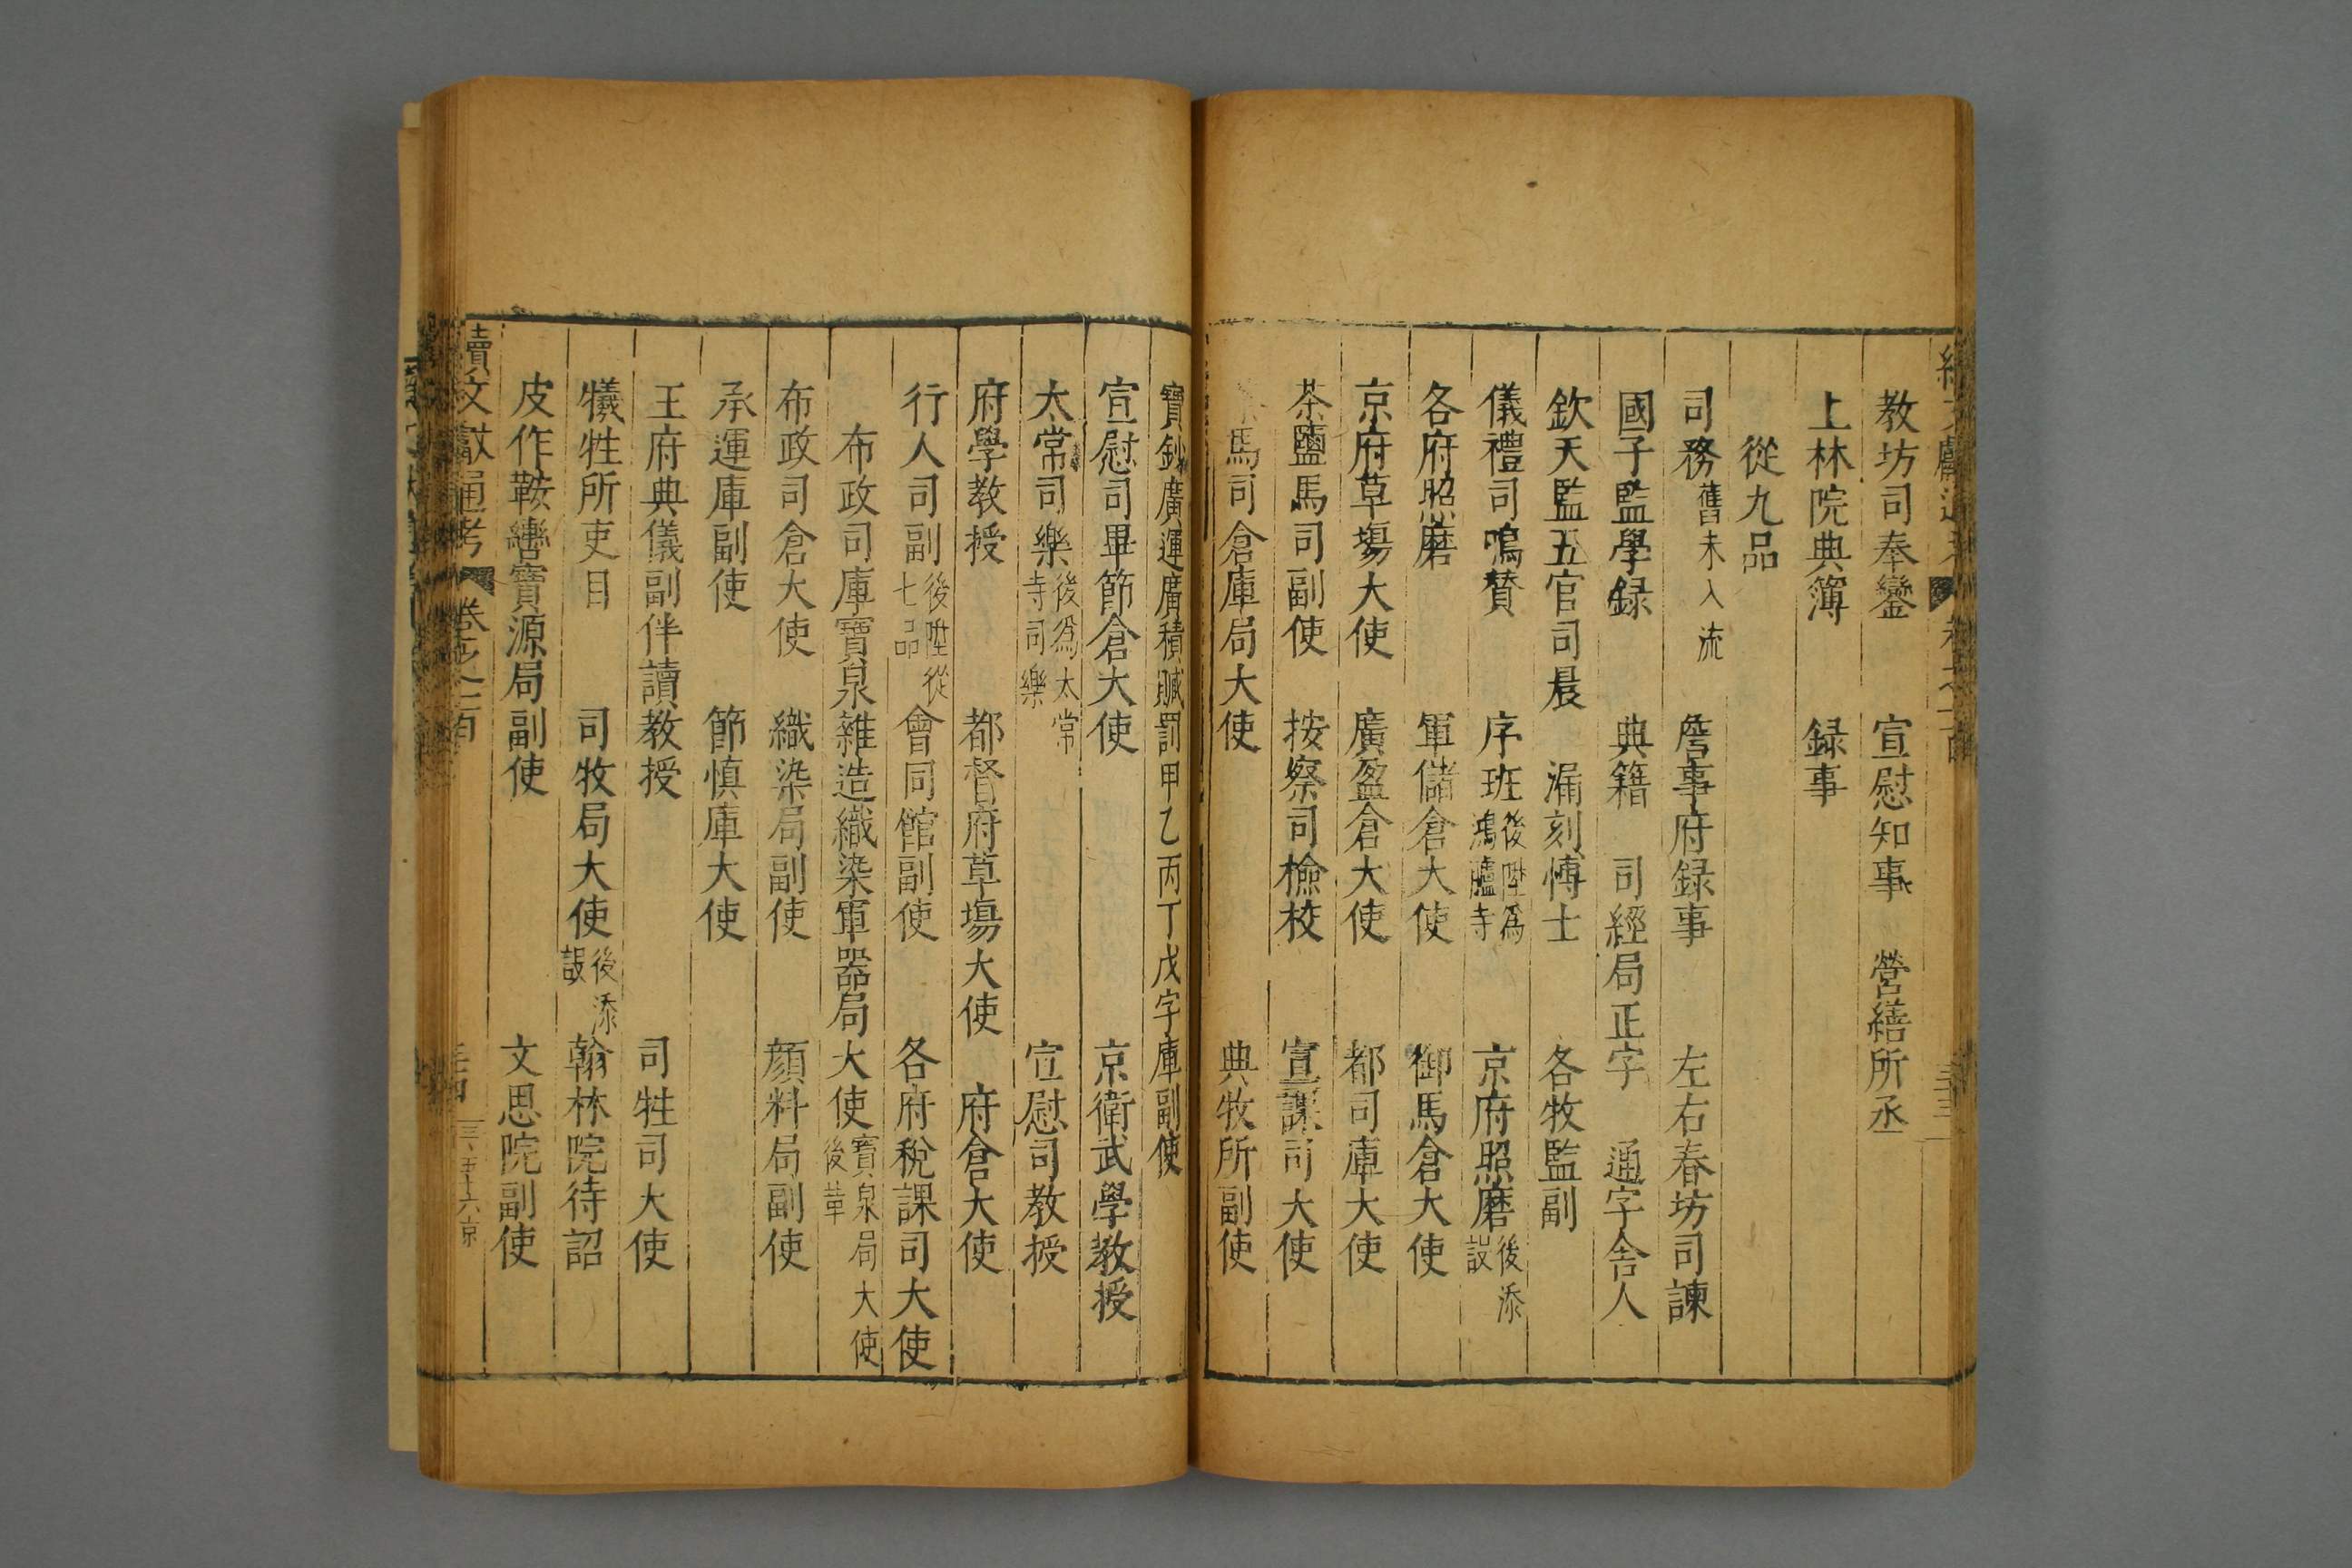 教坊司奉鑾 宣慰知事 營繕所丞
上林院典簿 録事
從九品
司務舊未入流 詹事府録事 左右春坊司諫
國子監學録 典籍 司經局正字 通字舍人
欽天監五官司晨 漏刻博士 各牧監副
儀禮司鳴贊 序班後陞爲鴻臚寺 京府照磨後添設
各府照磨 軍儲倉大使 御馬倉大使
京府草塲大使 廣盈倉大使 都司庫大使
茶鹽馬司副使 按察司檢校 宣課司大使
馬司倉庫局大使 典牧所副使
寶鈔廣運廣積贓罰甲乙丙丁戊字庫副使
宣慰司畢節倉大使 京衛武學教授
太常司樂後爲太常寺司樂 宣慰司教授
府學教授 都督府草塲大使 府倉大使
行人司副後陞從七品 會同館副使 各府稅課司大使
布政司庫寶泉雜造織染軍器局大使寶泉局大使後革
布政司倉大使 織染局副使 顔料局副使
承運庫副使 節慎庫大使
王府典儀副伴讀教授 司牲司大使
犧牲所吏目 司牧局大使後添設 翰林院待詔
皮作鞍轡寶源局副使 文思院副使
續文獻通考 卷之一百